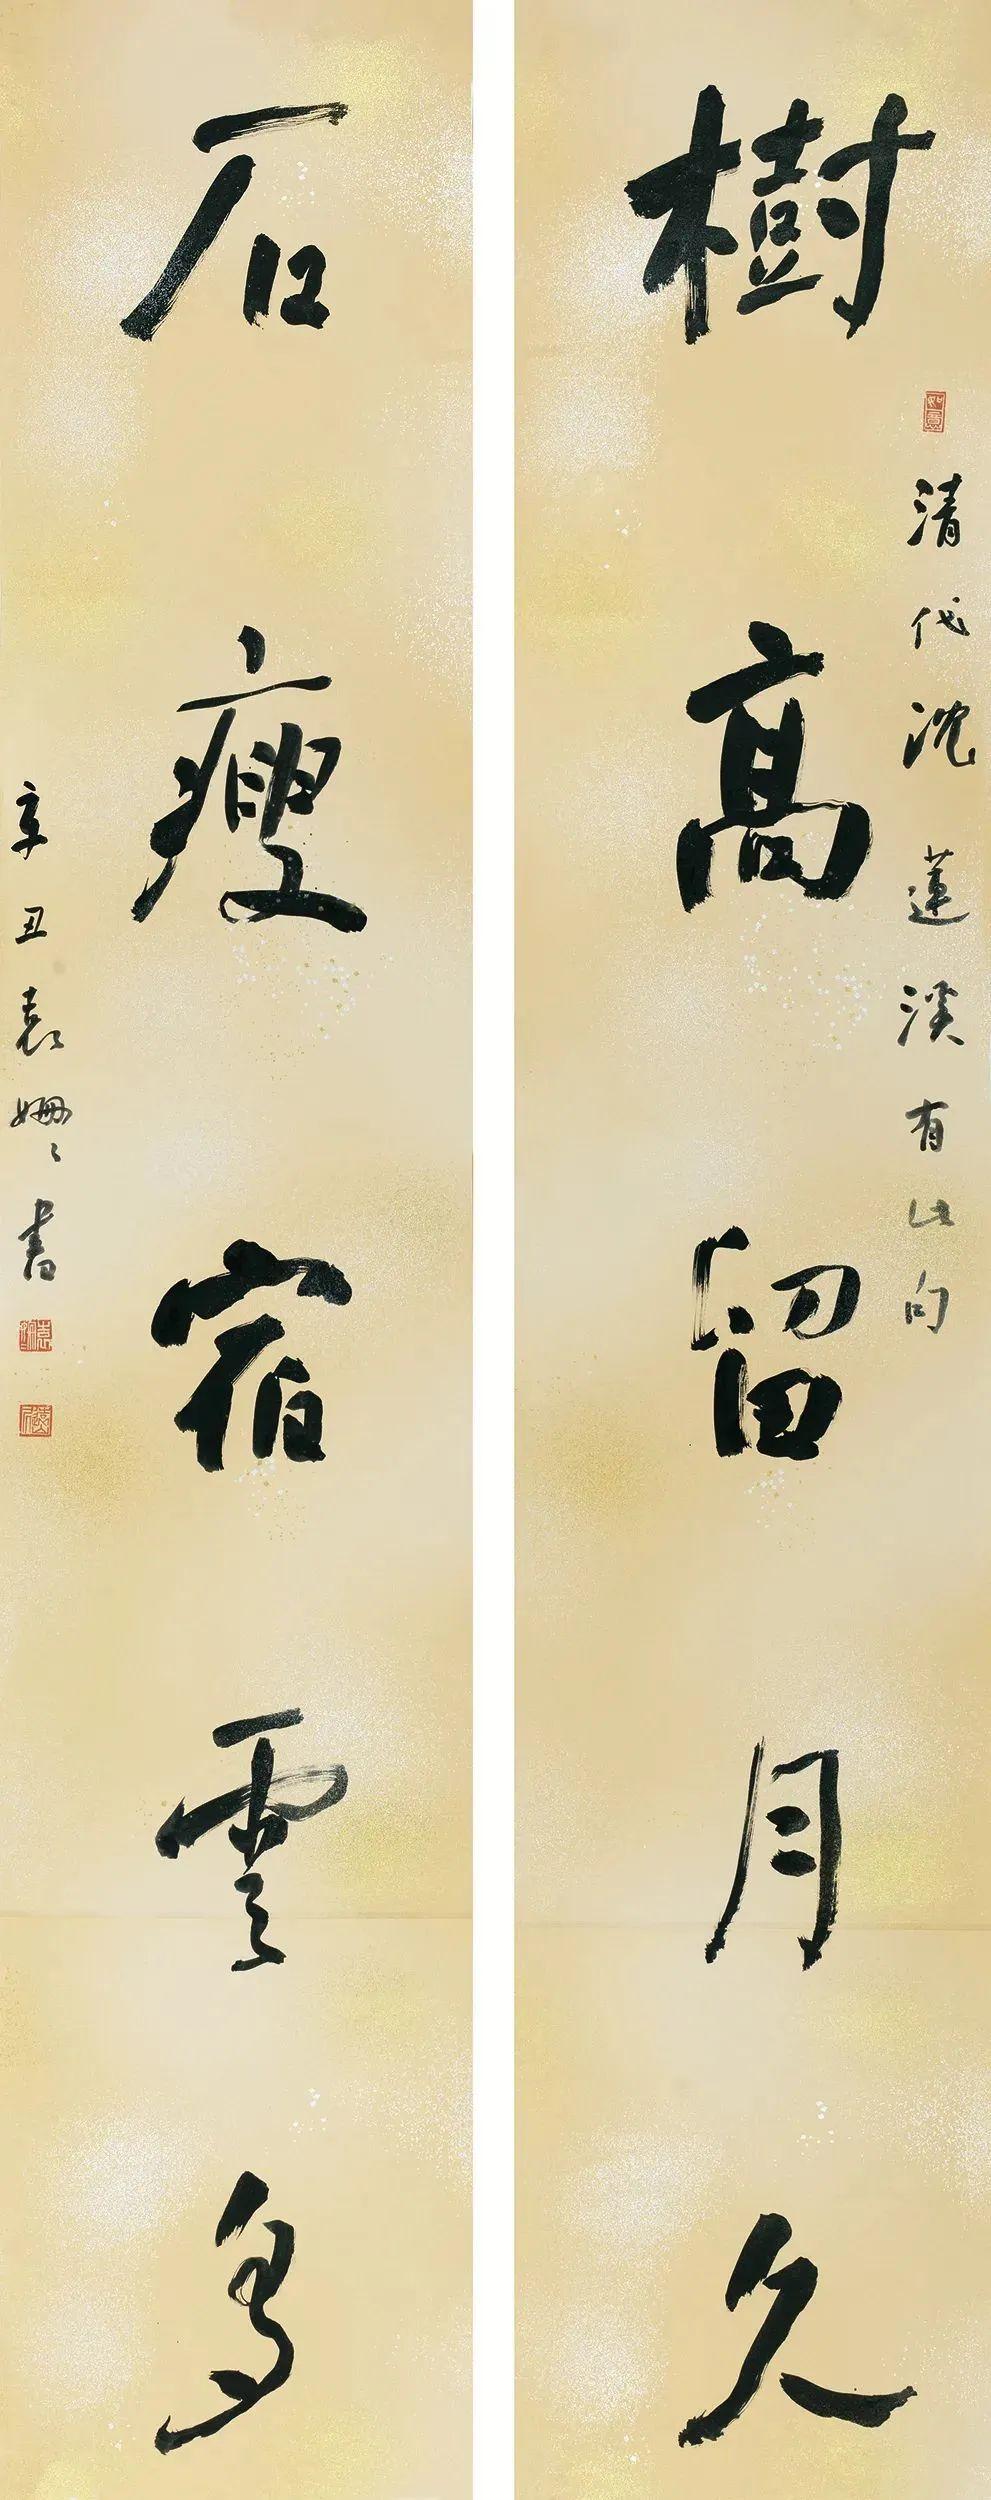 樹高留月久
如意
清代沈蓮溪有此句
石瘦宿雲多
辛丑袁姍〻書